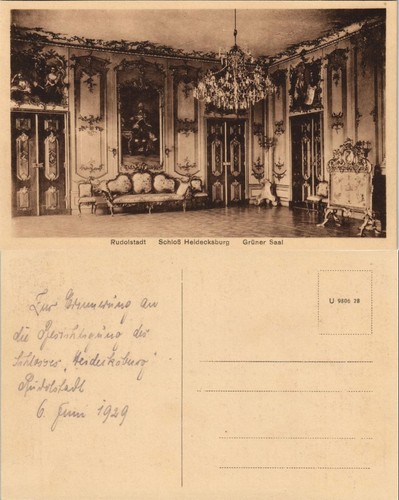 Rudolstadt Schloß Heidecksburg Grüner Saal
U 9806 38
Zur Erinnerung an
die Besichtigung des
Schlosses „Heidecksburg"
Rudolstadt
6. Juni 1929